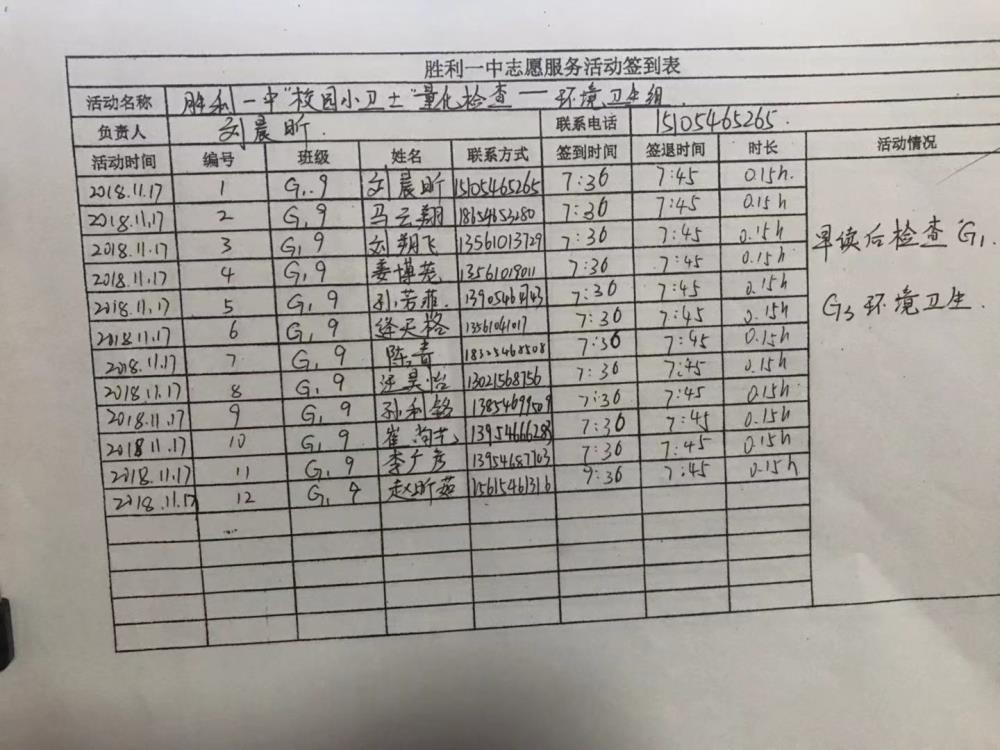 胜利一中志愿服务活动签到表
活动名称 胜利一中"校园小卫士"量化检查——环境卫生组
负责人 刘晨昕 联系电话 15105465265
活动时间 编号 班级 姓名 联系方式 签到时间 签退时间 时长 活动情况
2018.11.17 1 G₁.9 刘晨昕 15105465265 7:30 7:45 0.15h.
2018.11.17 2 G₁ 9 马云翔 18654653280 7:30 7:45 0.15h
2018.11.17 3 G₁ 9 刘翔飞 13561013729 7:30 7:45 0.15h
2018.11.17 4 G₁ 9 姜博茏 13561019011 7:30 7:45 0.15h
2018.11.17 5 G₁ 9 孙芳菲. 7:30 7:45 0.15h
2018.11.17 6 G₁ 9 13561041017 7:30 7:45 0.15h
2018.11.17 7 G₁ 9 陈青 18325468508 7:30 7:45 0.15h
2018.11.17 8 G₁ 9 汪昊怡 13021568756 7:30 7:45 0.15h
2018.11.17 9 G₁ 9 孙利铭 13854699509 7:30 7:45 0.15h
2018.11.17 10 G₁ 9 崔尚艺 13954666283 7:30 7:45 0.15h
2018.11.17 11 G₁ 9 李广彦 13954687703 7:30 7:45 0.15h
2018.11.17 12 G₁ 9 赵昕燕 15615461316 7:30 7:45 0.15h
早读后检查G₁.
G₃环境卫生